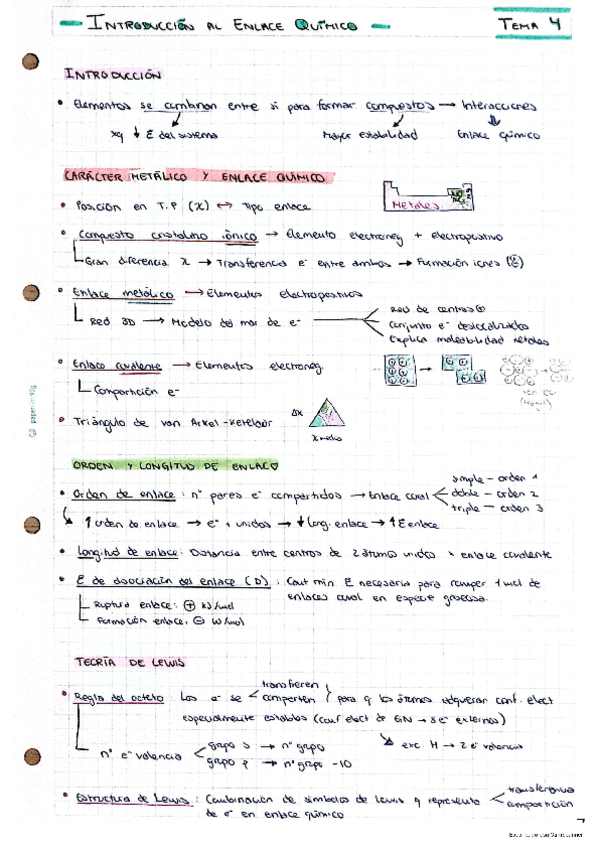 INTRODUCCIÓN AL ENLACE QUÍMICO
TEMA 4
INTRODUCCIÓN
• Elementos se combinan entre si para formar compuestos → Interacciones
xq ↓ E del sistema
Mayor estabilidad
Enlace químico
CARÁCTER METÁLICO Y ENLACE QUÍMICO
• Posición en T.P (χ) ↔ Tipo enlace
Metales
• Compuesto cristalino iónico → Elemento electroneg + electropositivo
Gran diferencia χ → Transferencia e⁻ entre ambos → Formación iones
• Enlace metálico → Elementos electropositivos
Red 3D → Modelo del mar de e⁻
Red de centros ⊕
Conjunto e⁻ deslocalizados
Explica maleabilidad metales
• Enlace covalente → Elementos electroneg.
Compartición e⁻
• Triángulo de van Arkel-Ketelaar
Δχ
χ medio
ORDEN Y LONGITUD DE ENLACE
• Orden de enlace: nº pares e⁻ compartidos → Enlace coval
simple – orden 1
doble – orden 2
triple – orden 3
↑ orden de enlace → e⁻ + unidos → ↓ long. enlace → ↑ E enlace
• Longitud de enlace: Distancia entre centros de 2 átomos unidos x enlace covalente
• E de disociación del enlace (D): Cant min E necesaria para romper 1 mol de
enlaces coval en especie gaseosa.
Ruptura enlace: ⊕ kJ/mol
Formación enlace: ⊖ kJ/mol
TEORÍA DE LEWIS
• Regla del octeto: Los e⁻ se
transfieren
comparten
para q los átomos adquieran conf. elect
especialmente estables (conf elect de GN → 8 e⁻ externos)
exc. H → 2 e⁻ valencia
nº e⁻ valencia
grupo s → nº grupo
grupo p → nº grupo -10
• Estructura de Lewis: Combinación de símbolos de Lewis q representa
transferencia
compartición
de e⁻ en enlace químico